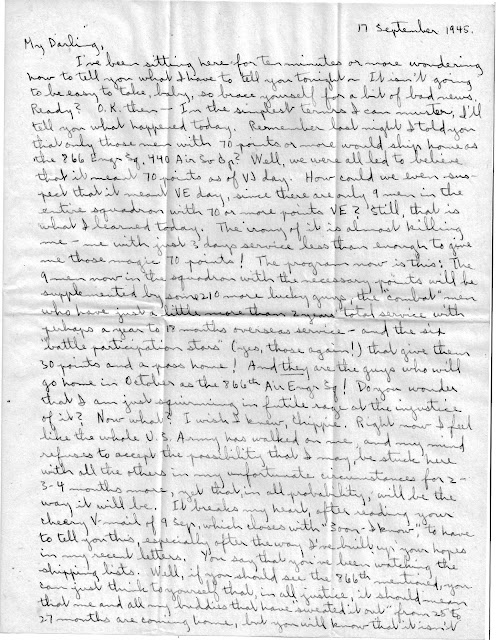 17 September 1945.
My Darling,
I've been sitting here for ten minutes or more wondering
how to tell you what I have to tell you tonight. It isn't going
to be easy to take, baby, so brace yourself for a bit of bad news.
Ready? O.K. then - In the simplest terms I can muster, I'll
tell you what happened today. Remember last night I told you
that only those men with 70 points or more would ship home as
the 866 Engr Sq, 440 Air Sv Gp? Well, we were all led to believe
that it meant 70 points as of VJ day. How could we even sus-
pect that it meant VE day, since there are only 9 men in the
entire squadron with 70 or more points VE? Still, that is
what I learned today. The irony of it is almost killing
me - me with just 3 days service less than enough to give
me those magic 70 points! The program now is this: The
9 men now in the squadron with the necessary points will be
supplemented by some 210 more lucky guys, the "combat" men
who have just a little more than 2 years total service with
perhaps a year to 18 months overseas service - and the six
"battle participation stars" (yes, those again!) that give them
30 points and a pass home! And they are the guys who will
go home in October as the 866th Air Engr Sq! Do you wonder
that I am just squirming in futile rage at the injustice
of it? Now what? I wish I knew, Chippie. Right now I feel
like the whole U.S. Army has walked on me, and my mind
refuses to accept the possibility that I may be stuck here
with all the others in my unfortunate circumstances for 2-
3-4 months more, yet that, in all probability, will be the
way it will be. It breaks my heart, after reading your
cheery V-mail of 9 Sep, which closes with "Soon - I know -", to have
to tell you this, especially after the way I've built up your hopes
in my recent letters. You say that you've been watching the
shipping lists. Well, if you should see the 866th mentioned, you
can just think to yourself that, in all justice, it should mean
that me and all my buddies that have "sweated it out" from 25 to
27 months are coming home, but you will know that it isn't